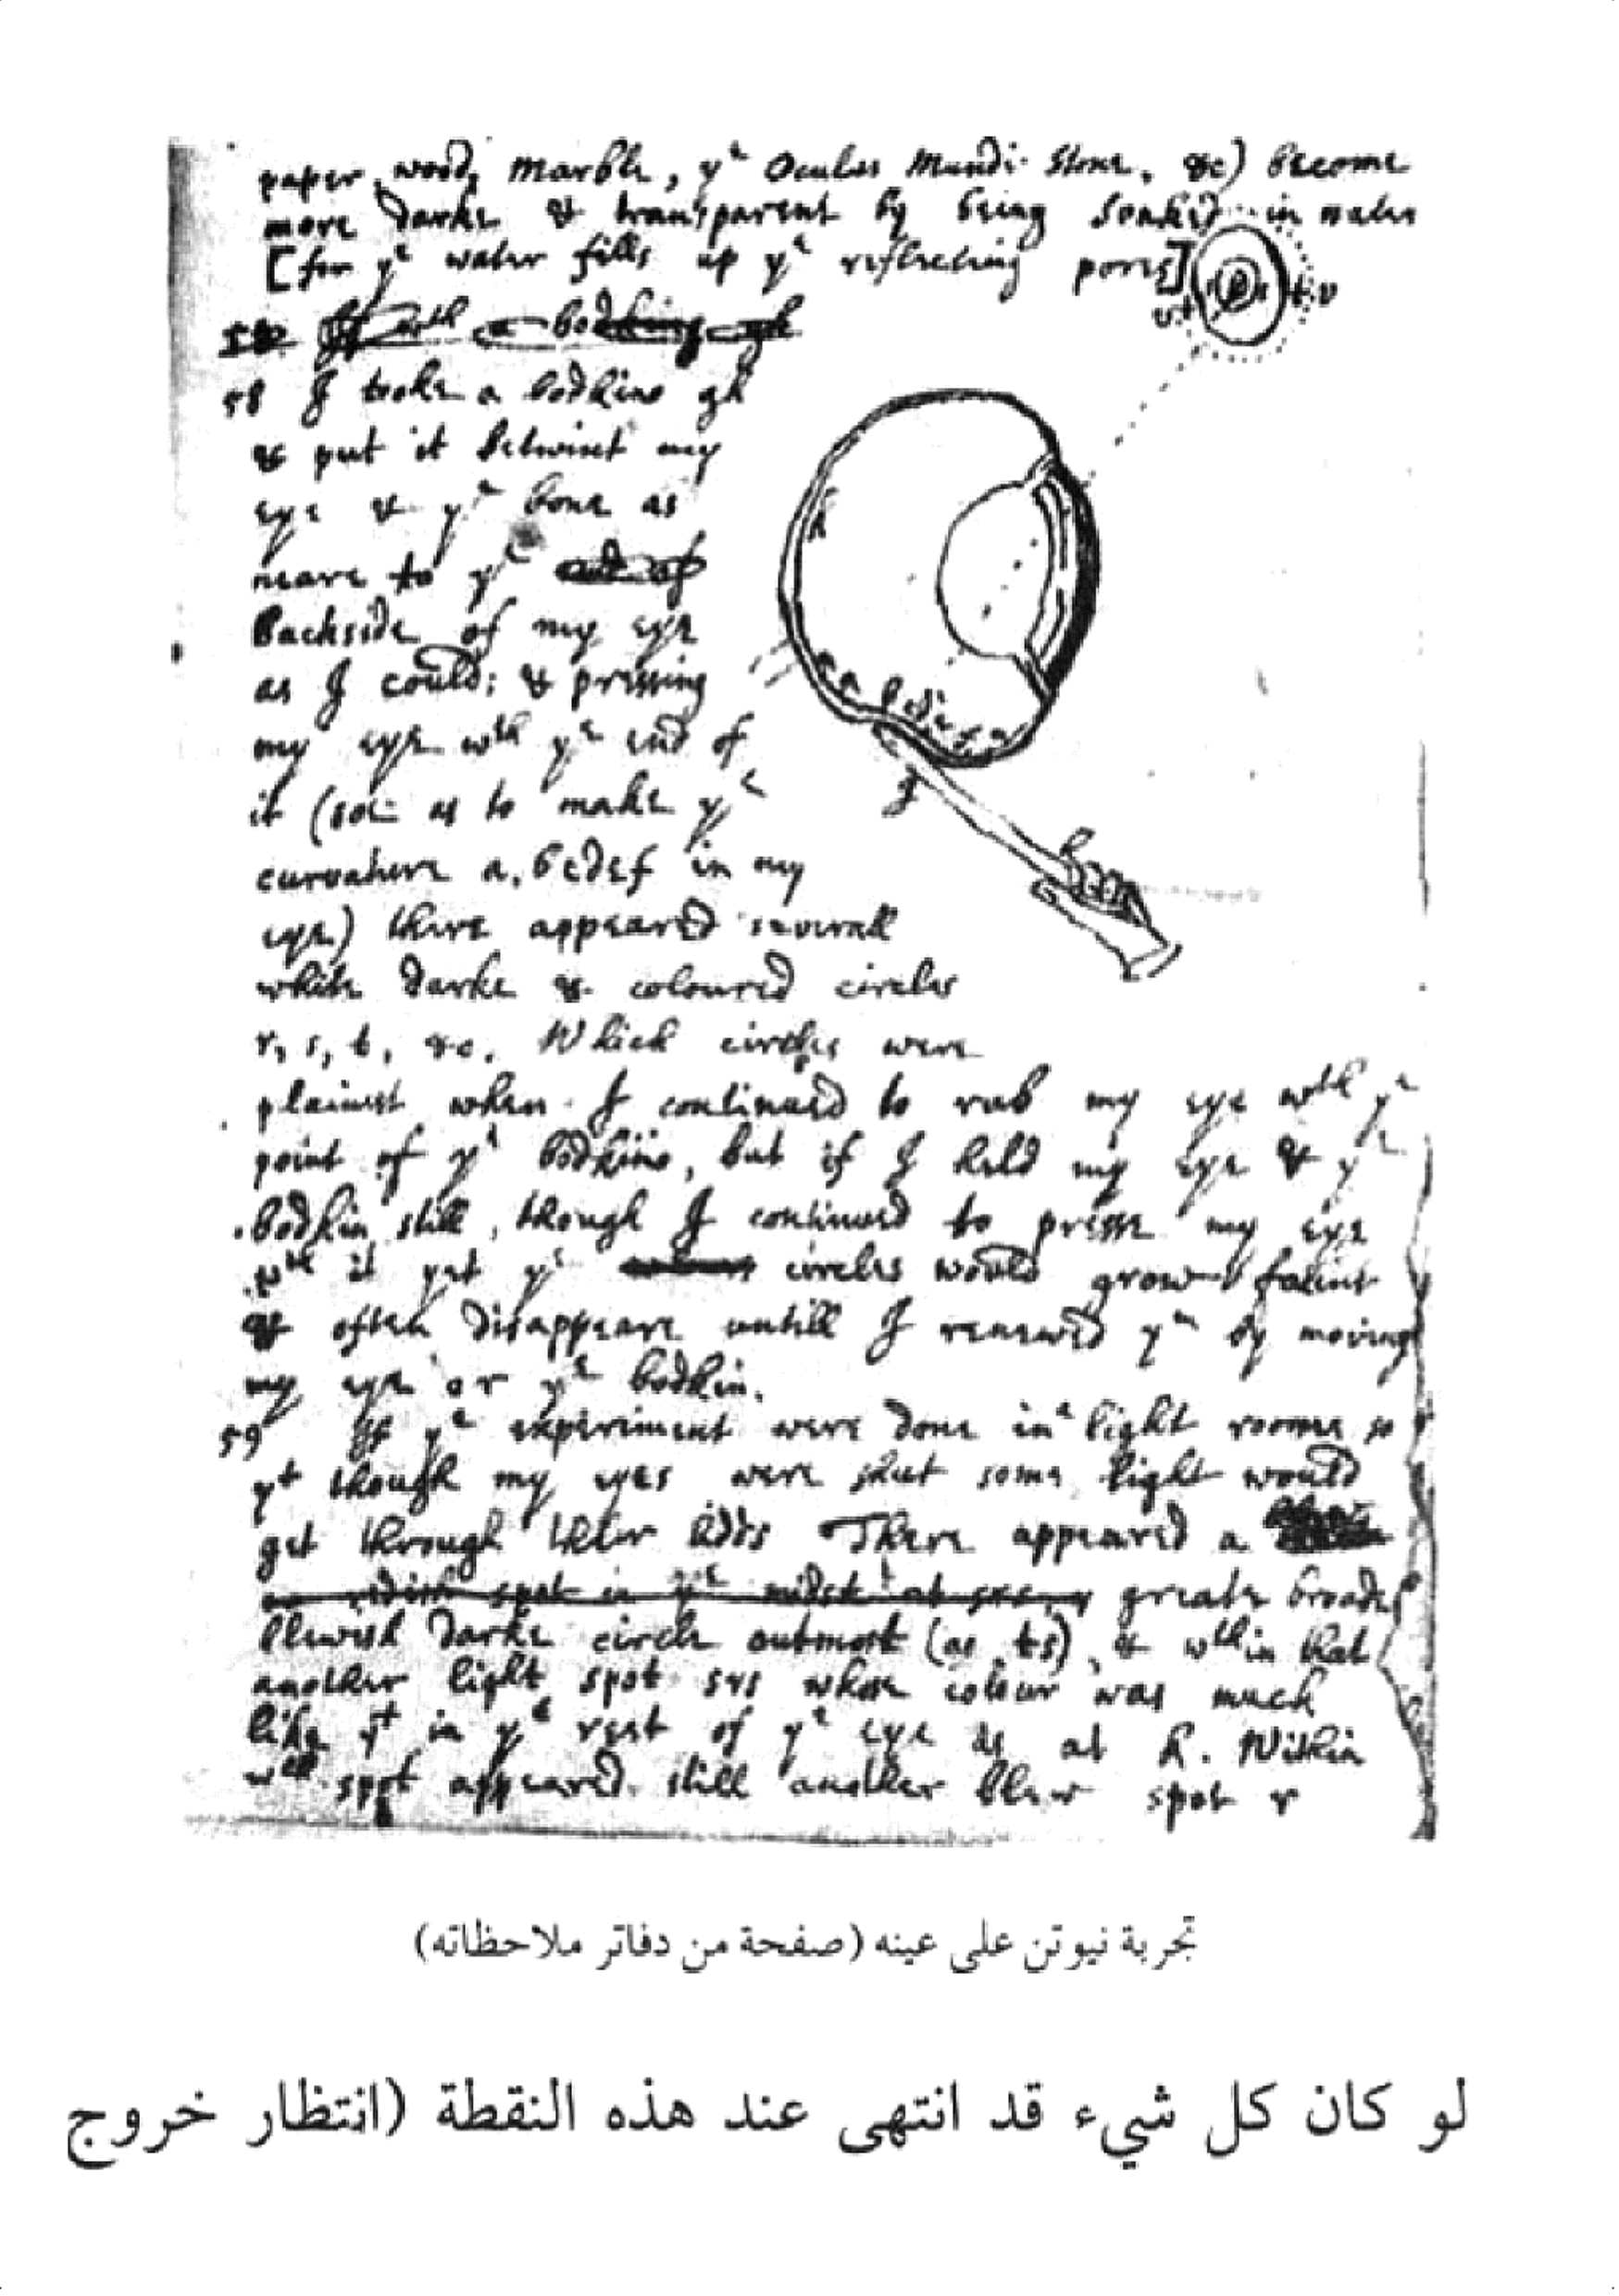 paper, wood, marble, yᵉ Oculus Mundi Stone, &c) become
more darke & transparent by being soaked in water
[for yᵉ water fills up yᵉ reflecting pores]
58 I tooke a bodkine gh
& put it betwixt my
eye & yᵉ bone as
neare to yᵉ
backside of my eye
as I could: & pressing
my eye wᵗʰ yᵉ end of
it (soe as to make yᵉ
curvature a, bcdef in my
eye) there appeared severall
white darke & coloured circles
r, s, t, &c. Which circles were
plainest when I continued to rub my eye wᵗʰ yᵉ
point of yᵉ bodkine, but if I held my eye & yᵉ
bodkin still, though I continued to presse my eye
wᵗʰ it yet yᵉ circles would grow faint
& often disappeare untill I renewed yᵐ by moving
my eye or yᵉ bodkin.
59 If yᵉ experiment were done in a light roome so
yᵗ though my eyes were shut some light would
get through their lidds There appeared a
greate broade
blewish darke circle outmost (as ts), & wᵗʰin that
another light spot srs whose colour was much
like yᵗ in yᵉ rest of yᵉ eye as at k. Within
wᶜʰ spot appeared still another blew spot r
تجربة نيوتن على عينه (صفحة من دفاتر ملاحظاته)
لو كان كل شيء قد انتهى عند هذه النقطة (انتظار خروج